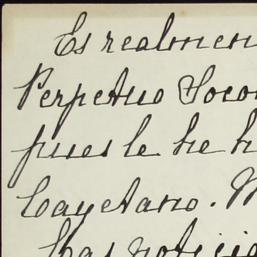 Es realmen
Perpetuo Soco
pues le he h
Cayetano. M
Las noticia